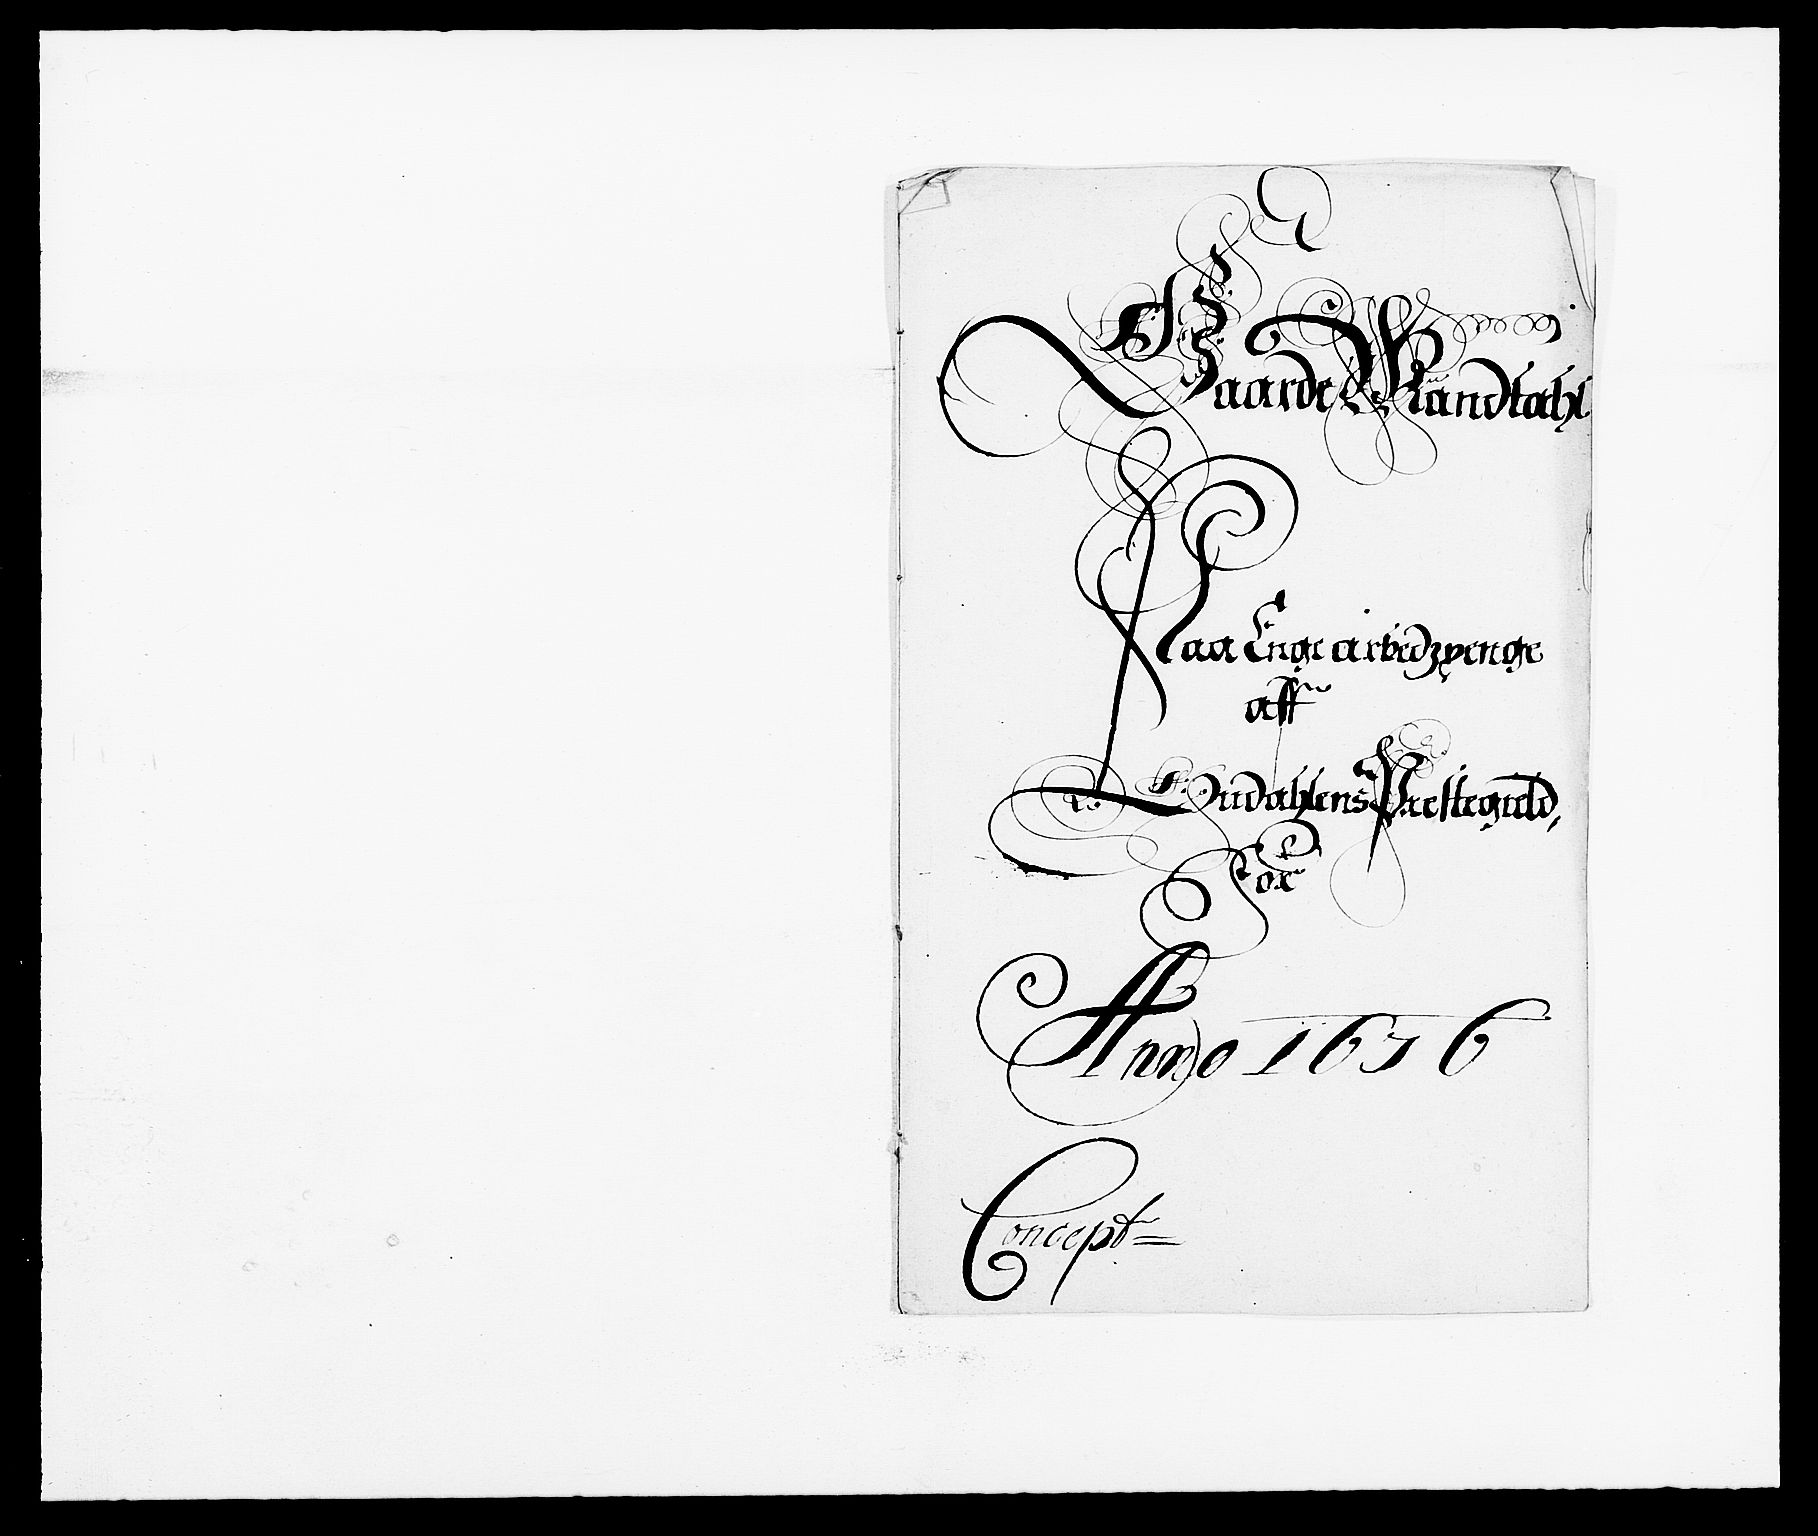 Gaarde Mandtahl
Paa Enge arbedzpenge
aff
Præstegield,
For
Anno 1676
Concept=